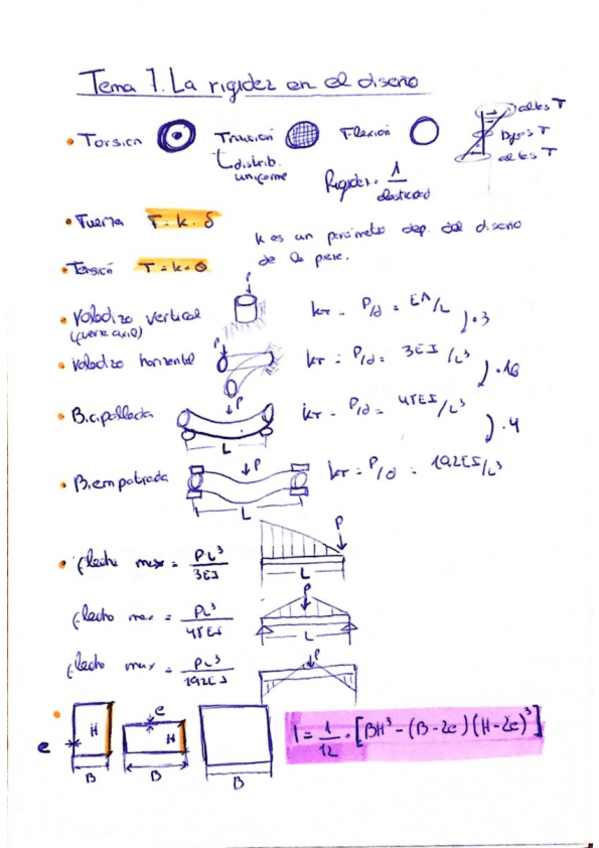 Tema 7. La rigidez en el diseño
• Torsión Tracción Flexión
altas T
bajas T
altas T
distrib.
uniforme
Rigidez = 1/elasticidad
• Fuerza F = k · δ
k es un parámetro dep. del diseño
de la pieza.
• Torsión T = k · θ
• Voladizo vertical
(fuerza axil)
F
kT = P/d = EA/L
) · 3
• Voladizo horizontal P kT = P/d = 3EI/L³
) · 16
• Biapoyada P L kT = P/d = 48EI/L³
) · 4
• Biempotrada P L kT = P/d = 192EI/L³
• flecha max = PL³/3EI P L
flecha max = PL³/48EI P L
flecha max = PL³/192EI P
• e H B e H B B
I = 1/12 · [BH³ - (B-2e)(H-2e)³]